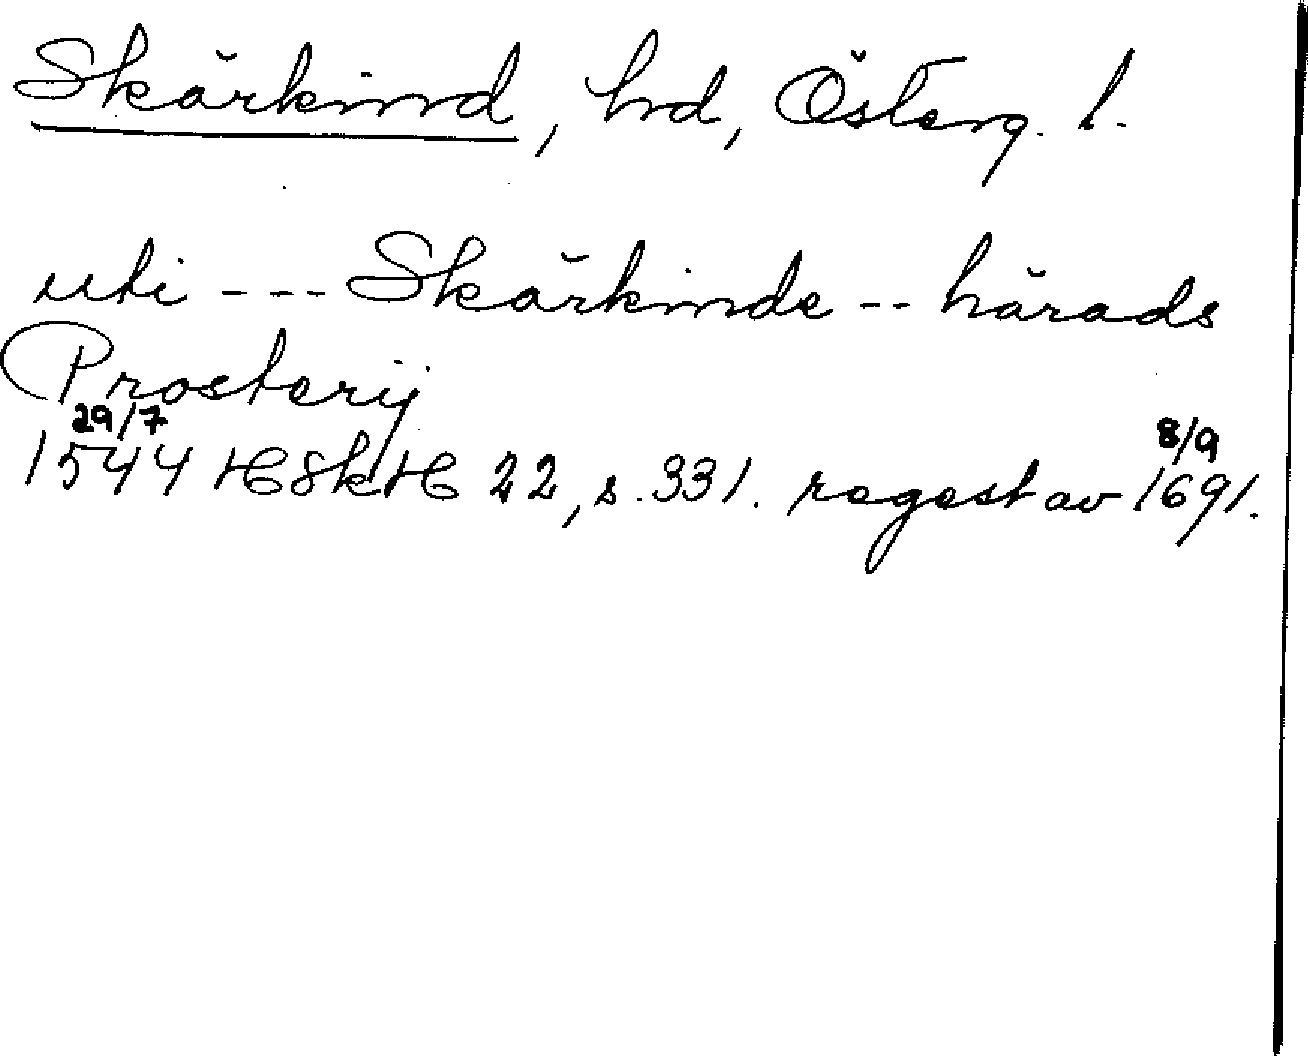 Skärkind, hd, Österg. l.
uti --- Skärkinde -- härads
Prosterij
29/7 8/9
1544 HSkH 22, s. 331. regest av 1691.